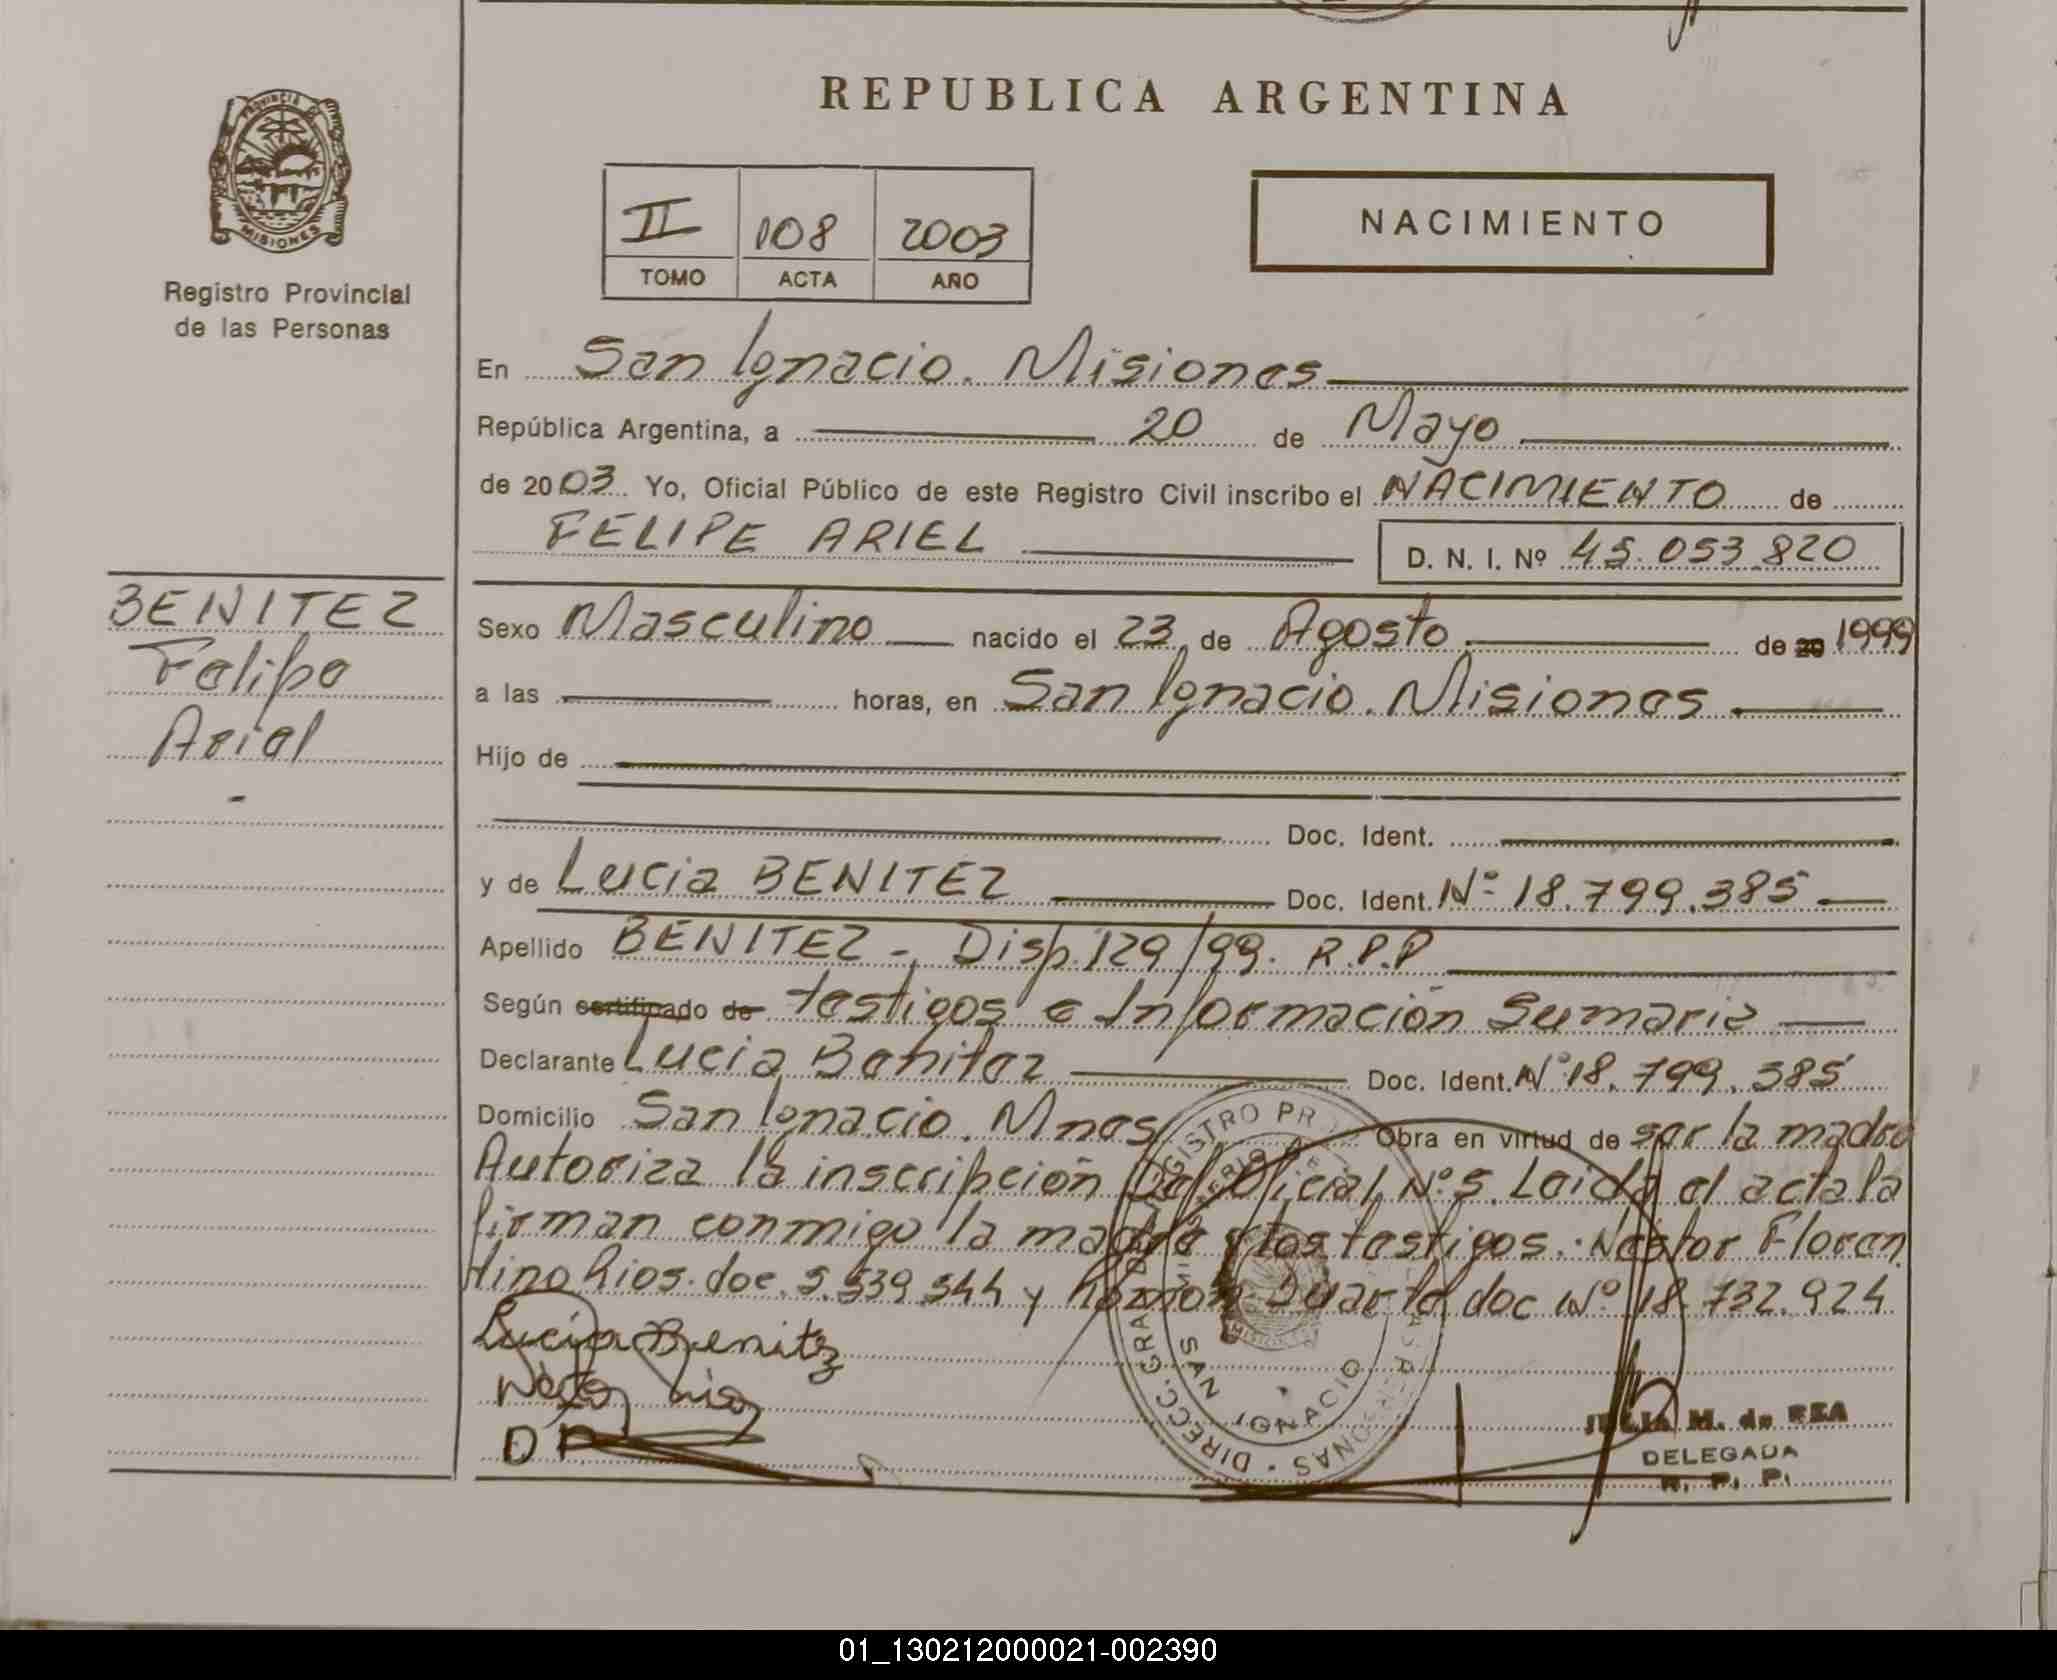 REPUBLICA ARGENTINA
PROVINCIA DE
MISIONES
Registro Provincial
de las Personas
II 108 2003
TOMO ACTA AÑO
NACIMIENTO
En San Ignacio. Misiones
República Argentina, a 20 de Mayo
de 2003 Yo, Oficial Público de este Registro Civil inscribo el NACIMIENTO de
FELIPE ARIEL D. N. I. Nº 45.053.820
BENITEZ
Felipe
Ariel
-
Sexo Masculino nacido el 23 de Agosto de 20 1999
a las horas, en San Ignacio. Misiones
Hijo de
Doc. Ident.
y de Lucia BENITEZ Doc. Ident. Nº 18.799.385
Apellido BENITEZ - Disp. 129/99. R.P.P
Según certificado de testigos e Información Sumaria
Declarante Lucia Benitez Doc. Ident. Nº 18.799.385
Domicilio San Ignacio. Mnes Obra en virtud de ser la madre
Autoriza la inscripción Del Oficial Nº 5. Leida el acta la
firman conmigo la madre y los testigos: Nestor Floren
tino Rios. doc. 5.539.544 y Ramon Duarte doc Nº 18.732.924
Lucia Benitez
Nestor Rios
D R
SAN IGNACIO
JULIA M. de REA
DELEGADA
R. P. P.
01_130212000021-002390